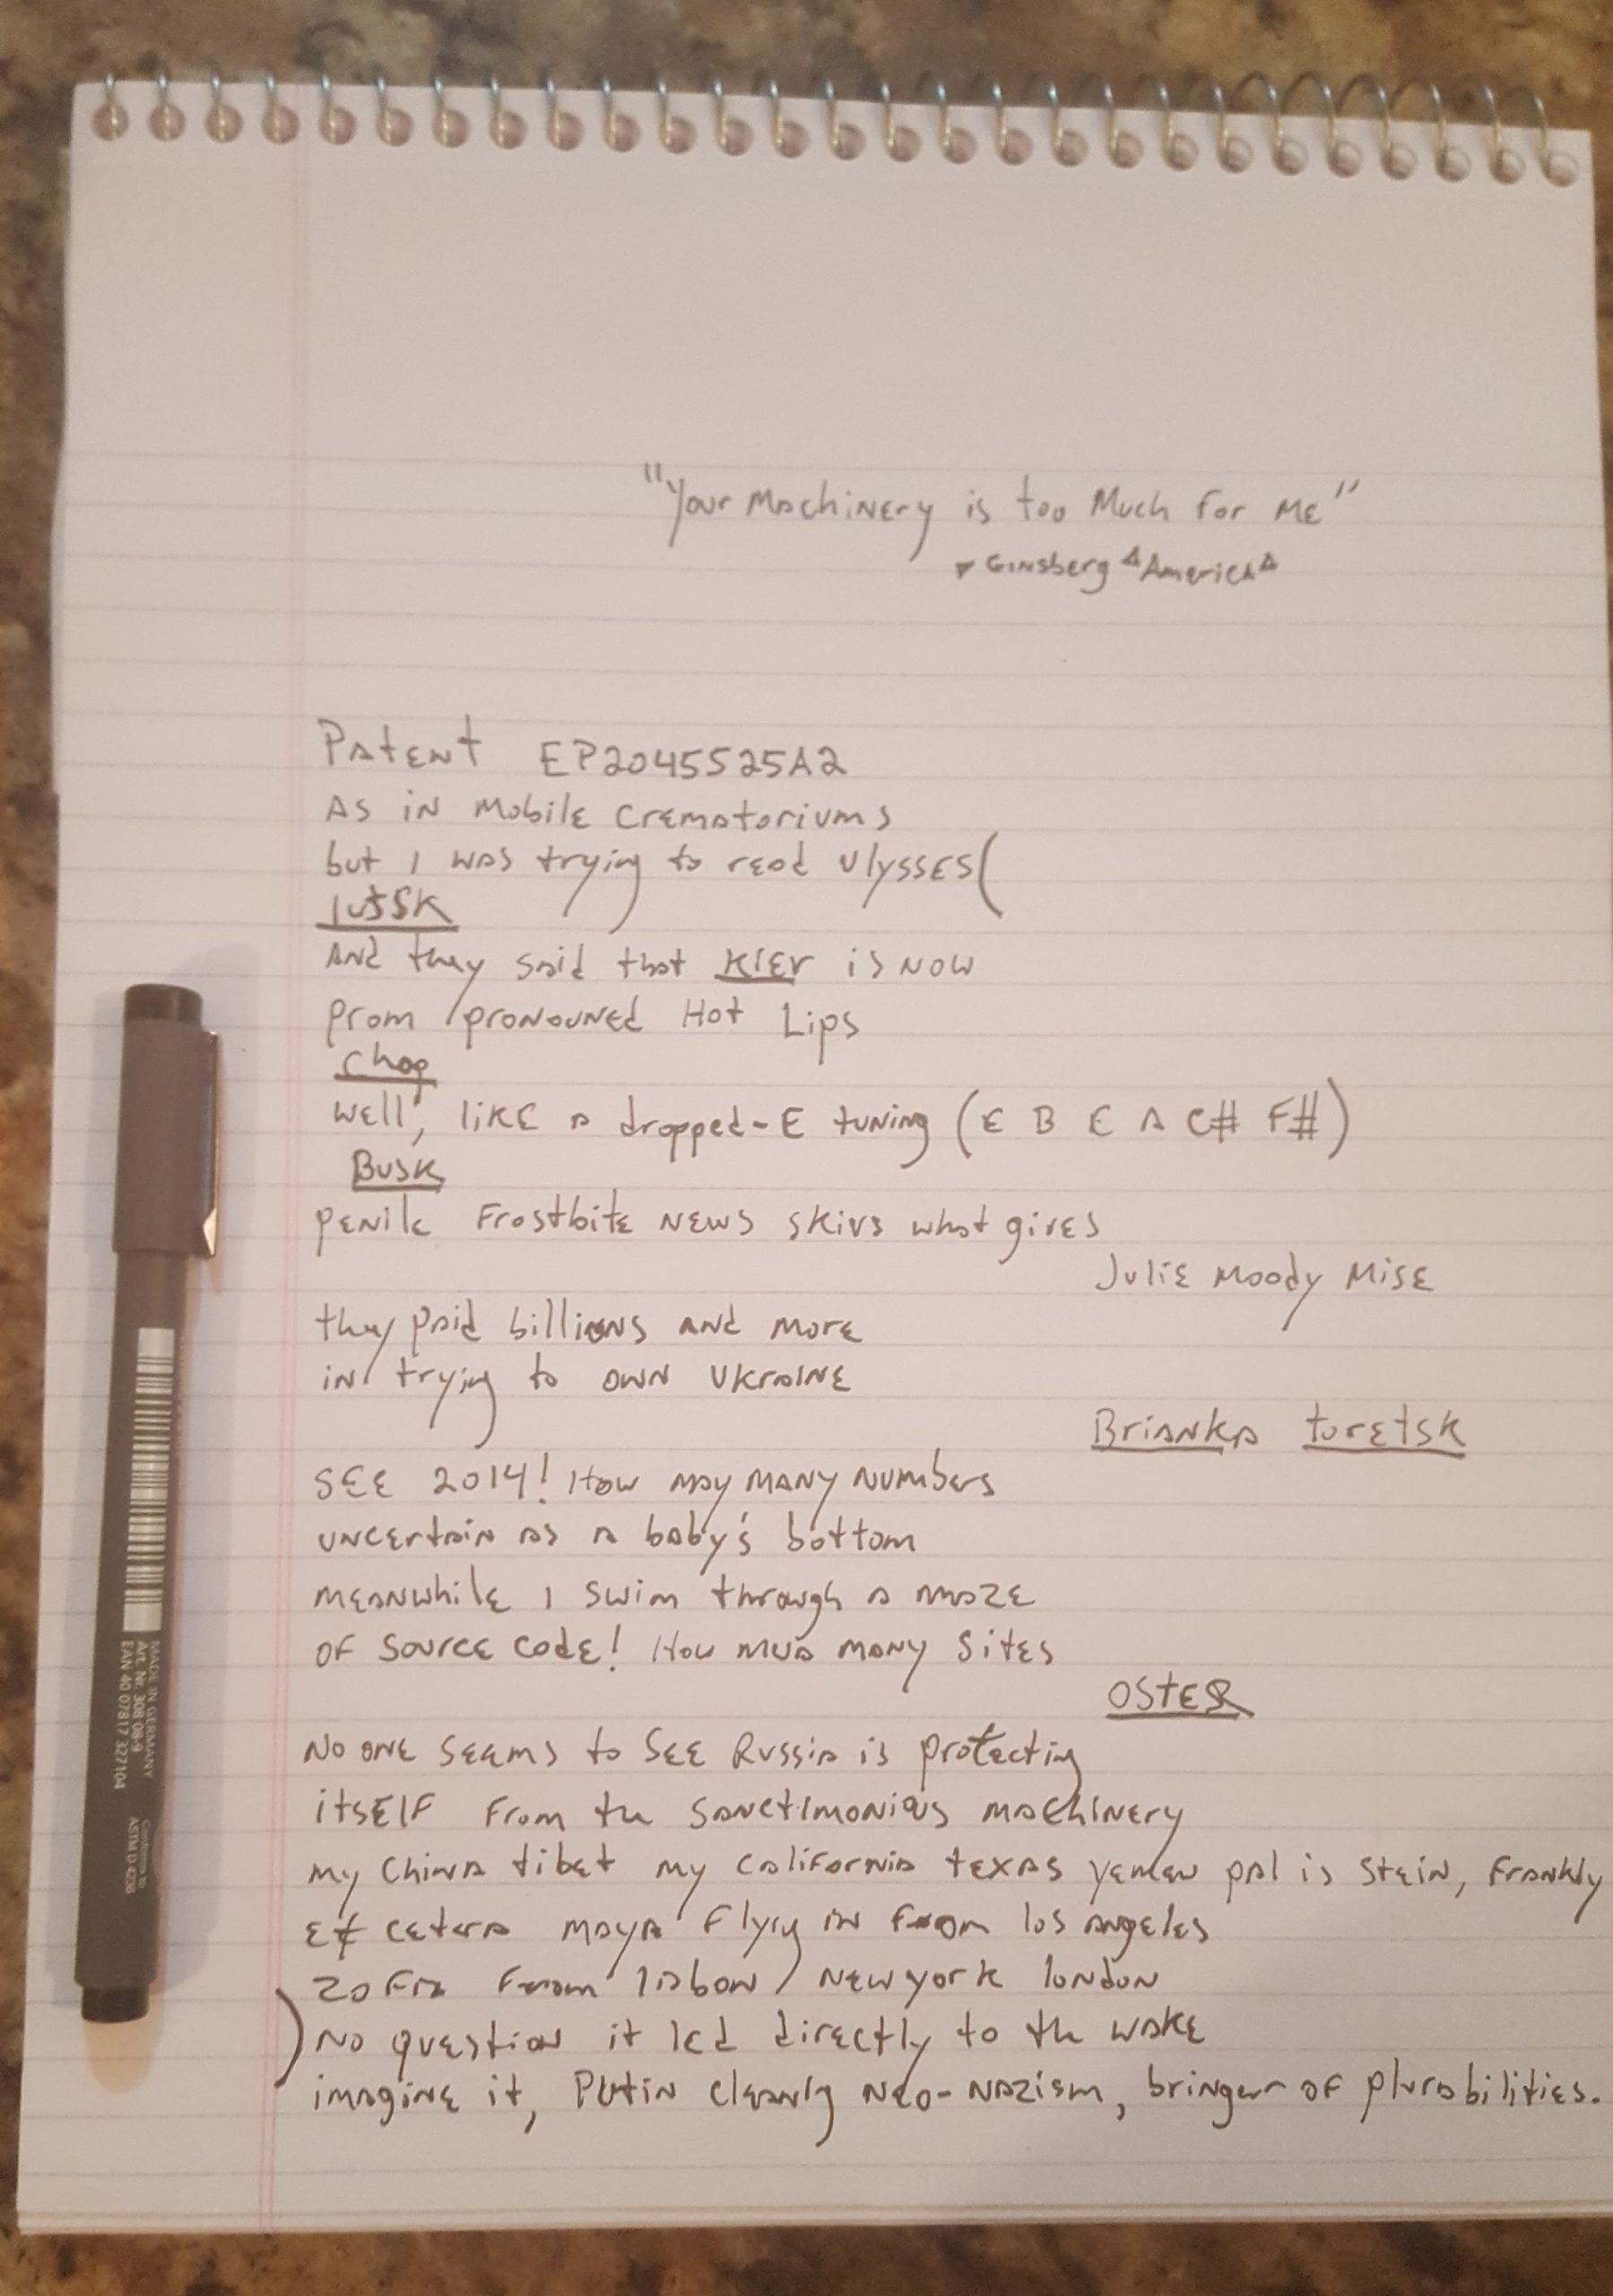 "Your Machinery is too Much for Me"
Ginsberg "America"
Patent EP2045525A2
As in Mobile Crematoriums
but I was trying to read Ulysses(
lutsk
And they said that Kiev is now
prom / pronouned Hot Lips
Chop
Well, like a dropped-E tuning (E B E A C# F#)
Busk
penile Frostbite news skivs what gives
Julie Moody Mise
they paid billions and more
in trying to own Ukraine
Brianka toretsk
See 2014! How may many numbers
uncertain as a baby's bottom
meanwhile I swim through a maze
of source code! How many sites
OSTER
No one seems to see Russia is protecting
itself from the sanctimonious machinery
my China tibet my California texas yemen pal is Stein, frankly
et cetera maya flyig in from los angeles
from lisbon / New york london
) no question it led directly to the wake
imagine it, Putin cleanly neo-nazism, bringer of plurabilities.
MADE IN GERMANY
Art. Nr. 308 08-9
EAN 40 07817 327104
Conforms to
ASTM D-4236